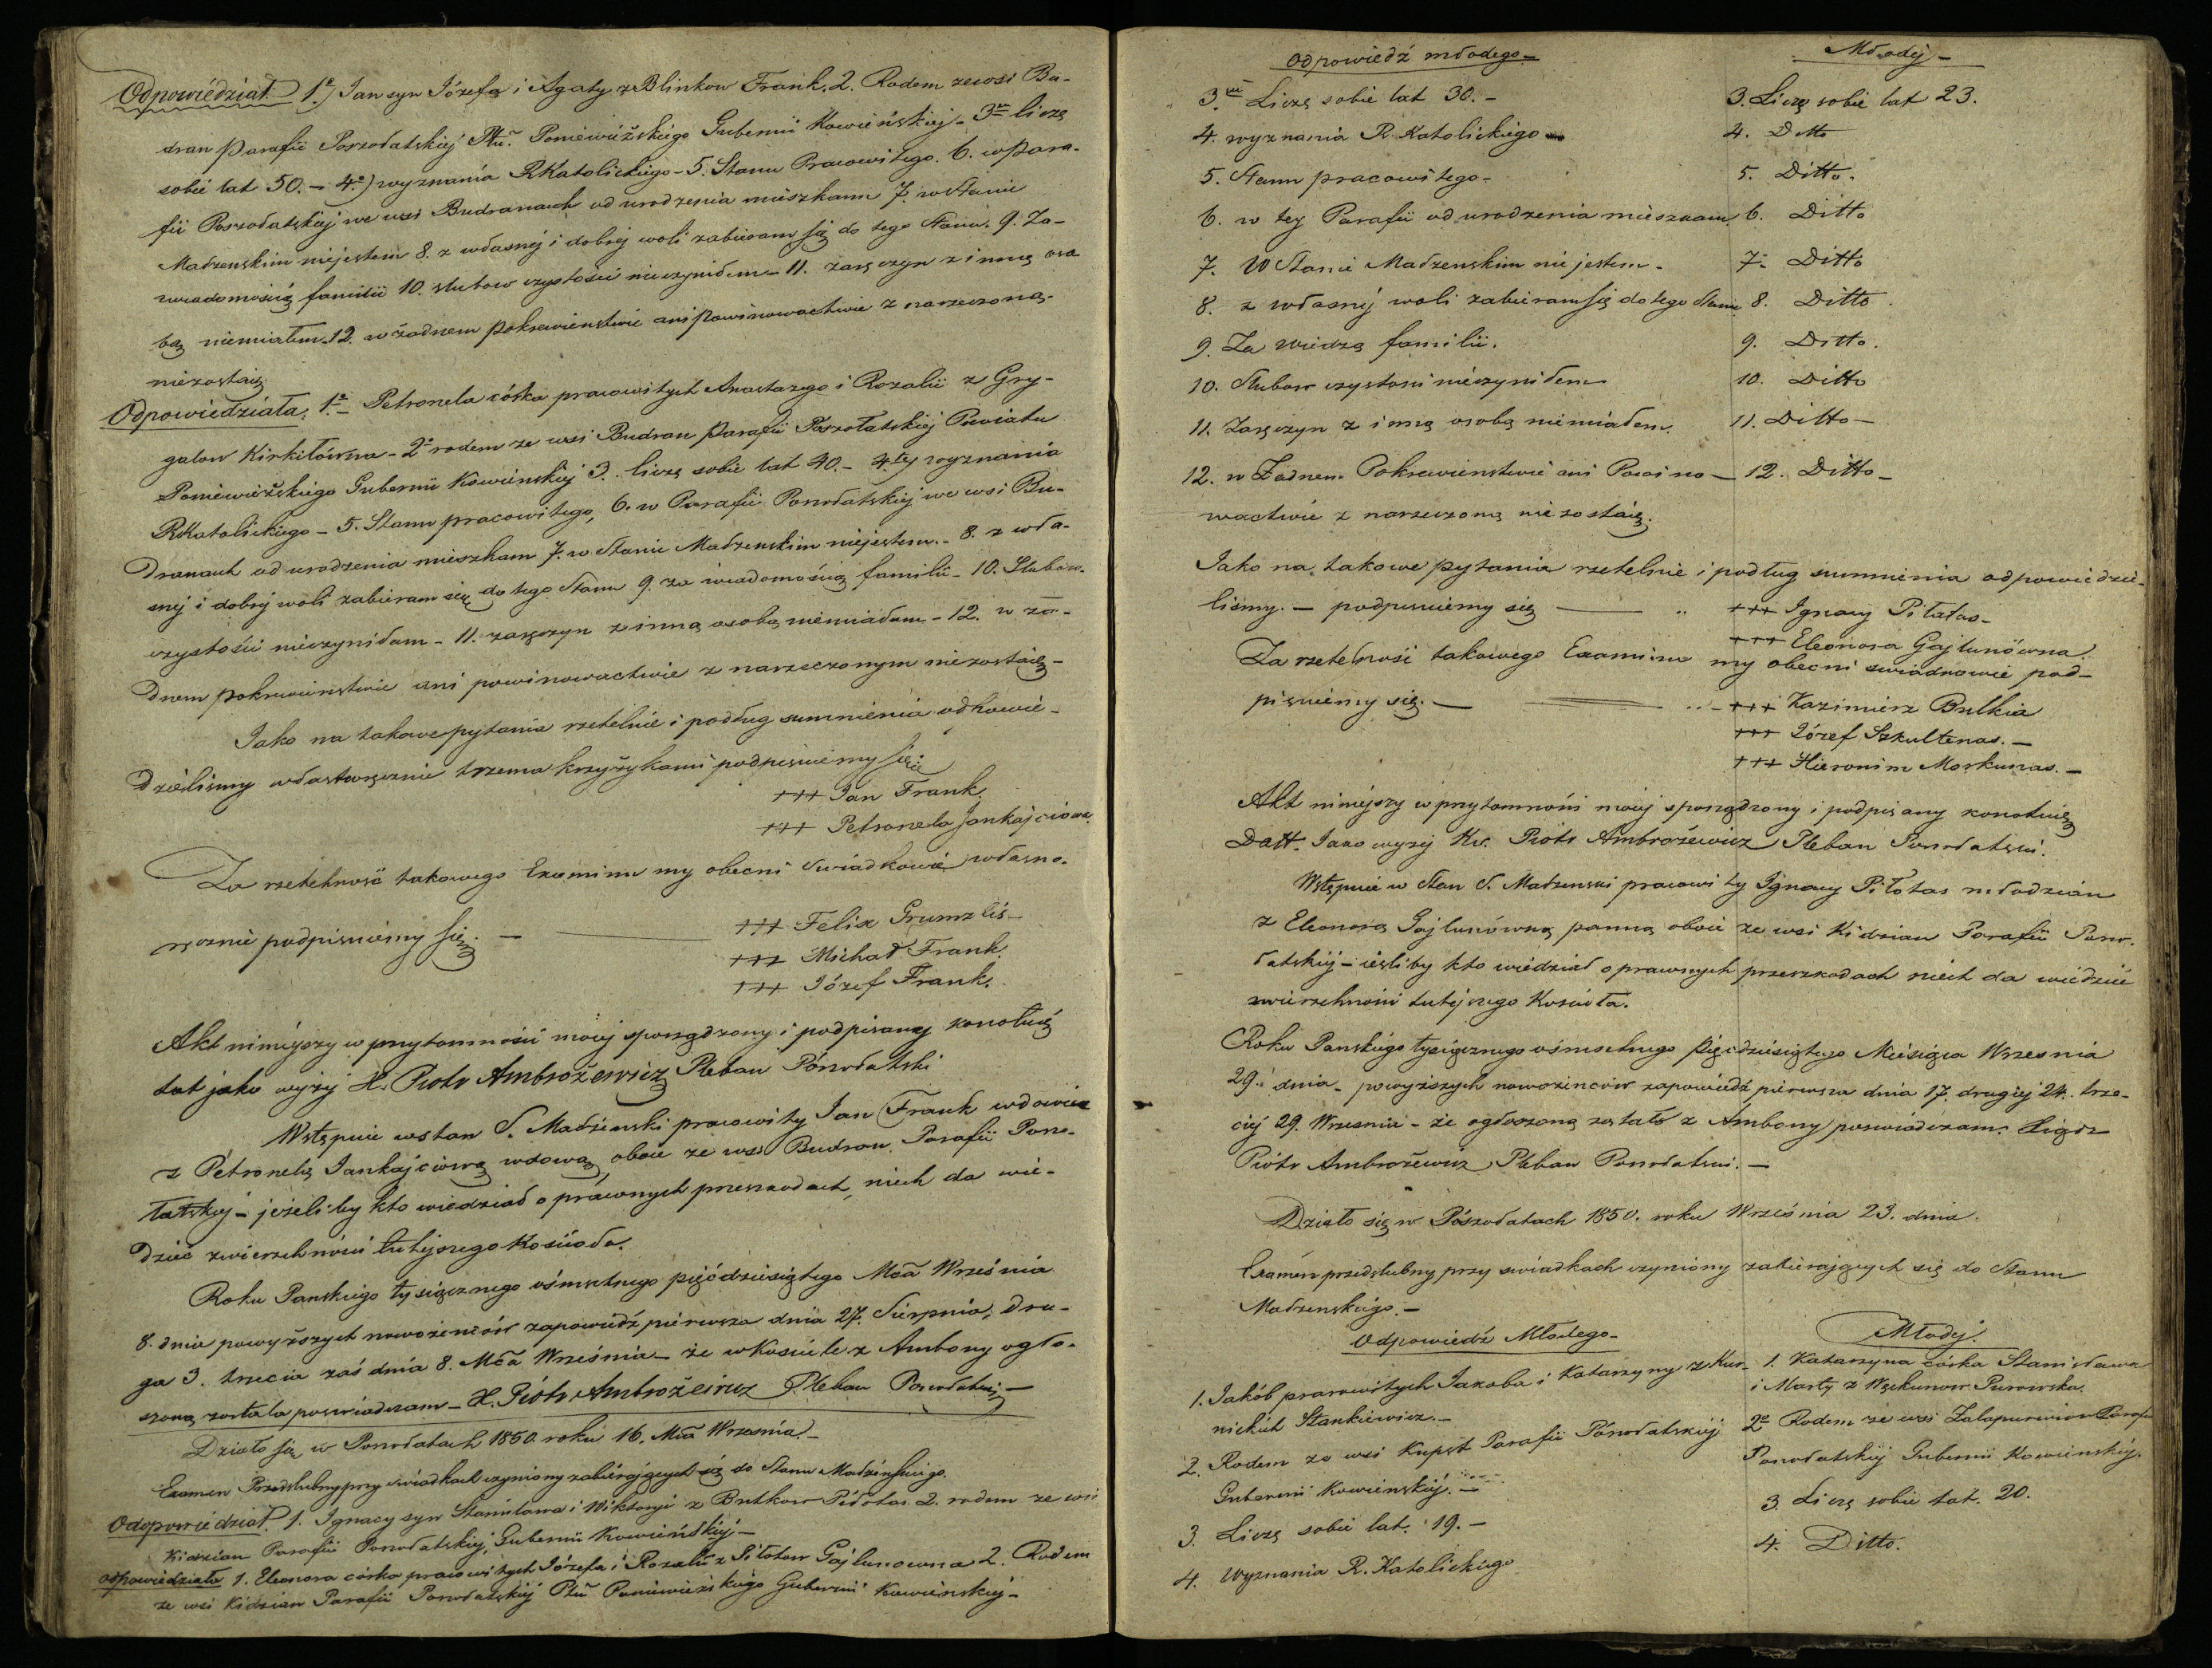 Odpowiédział 1º) Jan syn Józefa i Agaty z Blinkow Frank. 2. Rodem ze wsi Bu-
dran Parafii Poszołatskiej Ptu. Poniewiéżskiego Gubernii Kowieńskiej - 3. liczę
sobie lat 50. - 4º) wyznania RKatolickiego - 5. Stanu Pracowitego. 6. w Para-
fii Poszołatskiej we wsi Budranach od urodzenia mieszkam 7. w Stanie
Małzenskim niejestem 8. z własnéj i dobréj woli zabieram się do tego Stanu. 9. Za-
wiadomością familii 10. slubow czystości nieczyniłem - 11. zaręczyn z inną oso
bą niemiałem. 12. w żadnem pokrewienstwie ani powinowactwie z narzeczoną.
niezostaię.
Odpowiedziała. 1º - Petronela córka pracowitych Anastazego i Rozalii z Gry-
galow Kirkiłówna - 2º rodem ze wsi Budran Parafii Poszołatskiéj Powiatu
Poniewieżskiego Gubernii Kowieńskiej 3. liczę sobie lat 40. - 4tej wyznania
RKatolickiego - 5. Stanu pracowitego, 6. w Parafii Poszołatskiéj we wsi Bu-
dranach od urodzenia mieszkam 7. w Stanie Małzenskim niejestem. - 8. z wła-
snej i dobréj woli zabieram się do tego Stanu 9. za wiadomością familii - 10. Slubow.
czystości nieczyniłam - 11. zaręczyn z inną osobą niemiałam - 12. w ża-
dnem pokrewieństwie ani powinowactwie z narzeczonym niezostaię -
Jako na takowe pytania rzetelnie i podług sumnienia odpowie-
dzieliśmy własnoręcznie trzema krzyżykami podpisuiemy się
+++ Jan Frank.
+++ Petronela Jankajciowa.
Za rzetelność takowego Examinu my obecni Swiadkowie własno-
ręcznie podpisuiemy się. -
+++ Felix Grumzliś -
+++ Michał Frank.
+++ Józef Frank.
Akt niniejszy w przytomności mojej sporządzony i podpisany konotuię
dat jako wyżej X. Piotr Ambrożewicz Pleban Poszołatski
Wstępuie w stan S. Małżeński pracowity Jan Frank wdowiec
z Petronelą Jankajciową wdową oboie ze wsi Budran. Parafii Poszo-
łatskiej - jeżeli by kto wiedział o prawnych przeszkodach, niech da wie-
dzieć zwierzchności tutejszego Kosicoła.
Roku Panskiego tysiącznego ośmsetnego pięćdziesiątego Mca Września
8. dnia powyższych nowożeńców zapowiedź pierwsza dnia 27. Sierpnia, dru-
ga 3. trzecia zaś dnia 8. Mca Września - że w Kościele z Ambony ogło-
szoną została poswiadczam - X. Piotr Ambrożewicz Pleban Poszołatski -
Działo się w Poszołatach 1850 roku 16. Mca Września. -
Examen Przedslubny przy świadkach czyniony zabierających się do Stanu Małżeńskiego.
Odpowiedział. 1. Ignacy syn Stanisława i Wiktoryi z Butkow Piłotas. 2. rodem ze wsi
Kidzian Parafii Poszołatskiej, Gubernii Kowieńskiéj -
odpowiedziała 1. Eleonora córka pracowitych Józefa i Rozalii z Siłotow Gajlunowna 2. Rodem
ze wsi Kidzian Parafii Poszołatskiéj Ptu Poniewieżskiego Gubernii Kowienskiej -
Odpowiedź młodego -
Młodéj -
3. Liczę sobie lat 30. -
3. Liczę sobie lat 23.
4. wyznania R. Katolickiego -
4. Ditto
5. Stanu pracowitego -
5. Ditto.
6. w tey Parafii od urodzenia mieszkam
6. Ditto
7. W Stanie Małzenskim nie jestem -
7. Ditto
8. z własnéj woli zabieram się do tego Stanu
8. Ditto.
9. Za wiedzą familii.
9. Ditto.
10. Slubow czystosci nieczyniłem
10. Ditto
11. Zaręczyn z inną osobą niemiałem.
11. Ditto -
12. w Żadnem Pokrewienstwie ani Powino -
12. Ditto -
wactwie z narzeczoną nie zostaię.
Jako na takowe pytania rzetelnie i podług sumnienia odpowiedzie-
liśmy. - podpisuiemy się
+++ Ignacy Piłatas -
+++ Eleonora Gajlunówna.
Za rzetelność takowego Examinu my obecni swiadkowie pod-
pisuiemy się. -
+++ Kazimierz Butkia
+++ Józef Szkultenas. -
+++ Hieronim Morkunas. -
Akt niniejszy w przytomności mojej sporządzony i podpisany konotuię
Datt. Jako wyżej Kś. Piotr Ambrożewicz Pleban Poszołatski.
Wstępuie w Stan S. Małzenski pracowity Ignacy Piłotas młodzian
z Eleonorą Gajlunówną panną oboie ze wsi Kidzian Parafii Poszo-
łatskiéj - ieśliby kto wiedział o prawnych przeszkodach niech da wiedzieć
zwierzchności tutejszego Kosicoła.
Roku Panskiego tysiącznego ośmsetnego pięćdziesiątego Miesiąca Wrzesnia
29. dnia - powyższych nowożencow zapowiedź pierwsza dnia 17. drugiéj 24. trze-
ciéj 29. Wrzesnia - że ogłoszoną została z Ambony poswiadczam. Xiądz
Piotr Ambrożewicz Pleban Poszołatski. -
Działo się w Poszołatach 1850. roku Września 23. dnia.
Examen przedslubny przy swiadkach czyniony zabierających się do Stanu
Małzenskiego. -
Odpowiedź Młodego -
Młodéj.
1. Jakób pracowitych Jakoba i Katarzyny z Kur-
nickich Stankiewicz. -
1. Katarzyna córka Stanisława
i Marty z Wękunow Purowska.
2. Rodem ze wsi Kupszt Parafii Poszołatskiéj
Gubernii Kowienskiéj. -
2º Rodem ze wsi Parafii
Poszołatskiéj Gubernii Kowienskiéj.
3. Liczę sobie lat. 19. -
3. Liczę sobie lat. 20.
4. Wyznania R. Katolickiego
4. Ditto.